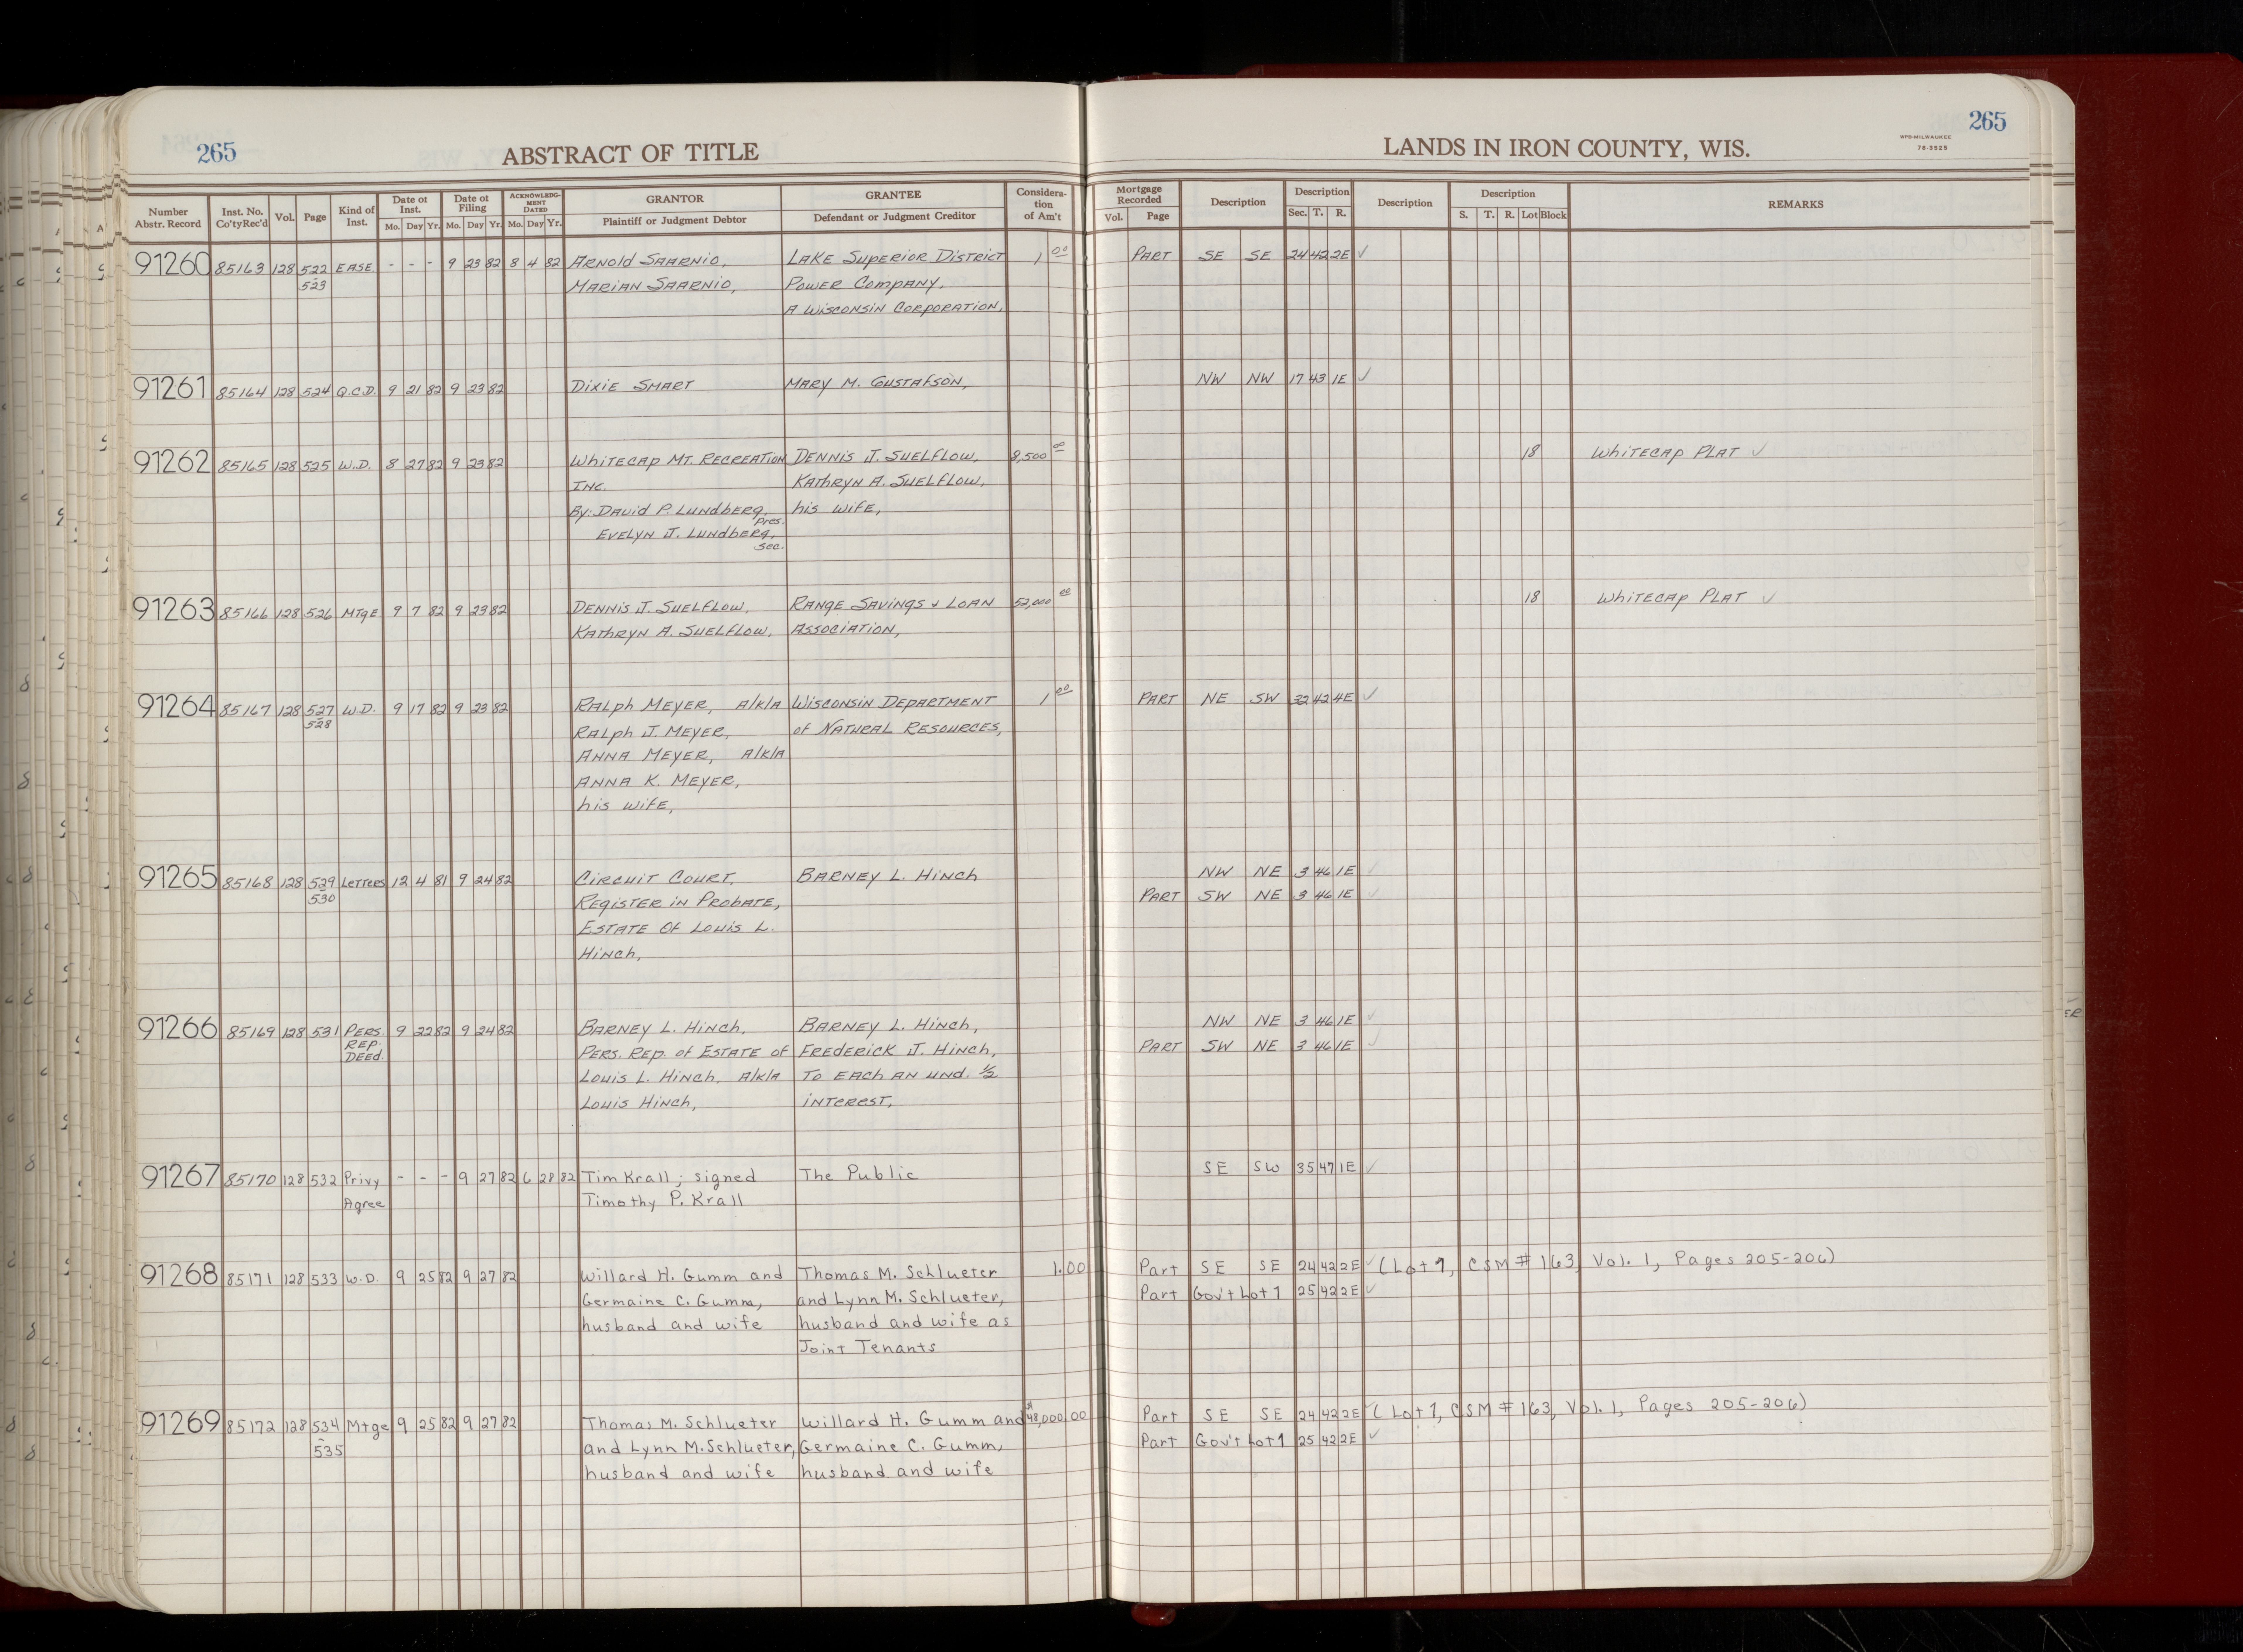 265 ABSTRACT OF TITLE LANDS IN IRON COUNTY, WIS. 265
WPB-MILWAUKEE
78-3525
Number Abstr. Record Inst. No. Co'ty Rec'd Vol. Page Kind of Inst. Date of Inst. Mo. Day Yr. Date of Filing Mo. Day Yr. ACKNOWLEDGMENT DATED Mo. Day Yr. GRANTOR Plaintiff or Judgment Debtor GRANTEE Defendant or Judgment Creditor Consideration of Am't Mortgage Recorded Vol. Page Description Description Sec. T. R. Description Description S. T. R. Lot Block REMARKS
91260 85163 128 522 EASE - - - 9 23 82 8 4 82 Arnold Saarnio, Lake Superior District 1 00 Part SE SE 24 42 2E ✓
523 Marian Saarnio, Power Company,
A Wisconsin Corporation,
91261 85164 128 524 Q.C.D. 9 21 82 9 23 82 Dixie Smart Mary M. Gustafson, NW NW 17 43 1E ✓
91262 85165 128 525 W.D. 8 27 82 9 23 82 Whitecap Mt. Recreation Dennis J. Suelflow, 8,500 00 18 Whitecap Plat ✓
Inc. Kathryn A. Suelflow,
By: David P. Lundberg, his wife,
Pres.
Evelyn J. Lundberg,
Sec.
91263 85166 128 526 Mtge 9 7 82 9 23 82 Dennis J. Suelflow, Range Savings & Loan 52,000 00 18 Whitecap Plat ✓
Kathryn A. Suelflow, Association,
91264 85167 128 527 W.D. 9 17 82 9 23 82 Ralph Meyer, a/k/a Wisconsin Department 1 00 Part NE SW 32 42 4E ✓
528 Ralph J. Meyer, of Natural Resources,
Anna Meyer, a/k/a
Anna K. Meyer,
his wife,
91265 85168 128 529 Letters 12 4 81 9 24 82 Circuit Court, Barney L. Hinch NW NE 3 46 1E ✓
530 Register in Probate, Part SW NE 3 46 1E ✓
Estate of Louis L.
Hinch,
91266 85169 128 531 Pers. 9 22 82 9 24 82 Barney L. Hinch, Barney L. Hinch, NW NE 3 46 1E ✓
Rep. Deed. Pers. Rep. of Estate of Frederick J. Hinch, Part SW NE 3 46 1E ✓
Louis L. Hinch, a/k/a To each an und. ½
Louis Hinch, interest,
91267 85170 128 532 Privy - - - 9 27 82 6 28 82 Tim Krall; signed The Public SE SW 35 47 1E ✓
Agree Timothy P. Krall
91268 85171 128 533 W.D. 9 25 82 9 27 82 Willard H. Gumm and Thomas M. Schlueter 1.00 Part SE SE 24 42 2E ✓ (Lot 1, CSM # 163, Vol. 1, Pages 205-206)
Germaine C. Gumm, and Lynn M. Schlueter, Part Gov't Lot 1 25 42 2E ✓
husband and wife husband and wife as
Joint Tenants
91269 85172 128 534 Mtge 9 25 82 9 27 82 Thomas M. Schlueter Willard H. Gumm and 48,000.00 Part SE SE 24 42 2E ✓ (Lot 1, CSM # 163, Vol. 1, Pages 205-206)
-535 and Lynn M. Schlueter, Germaine C. Gumm, Part Gov't Lot 1 25 42 2E ✓
husband and wife husband and wife